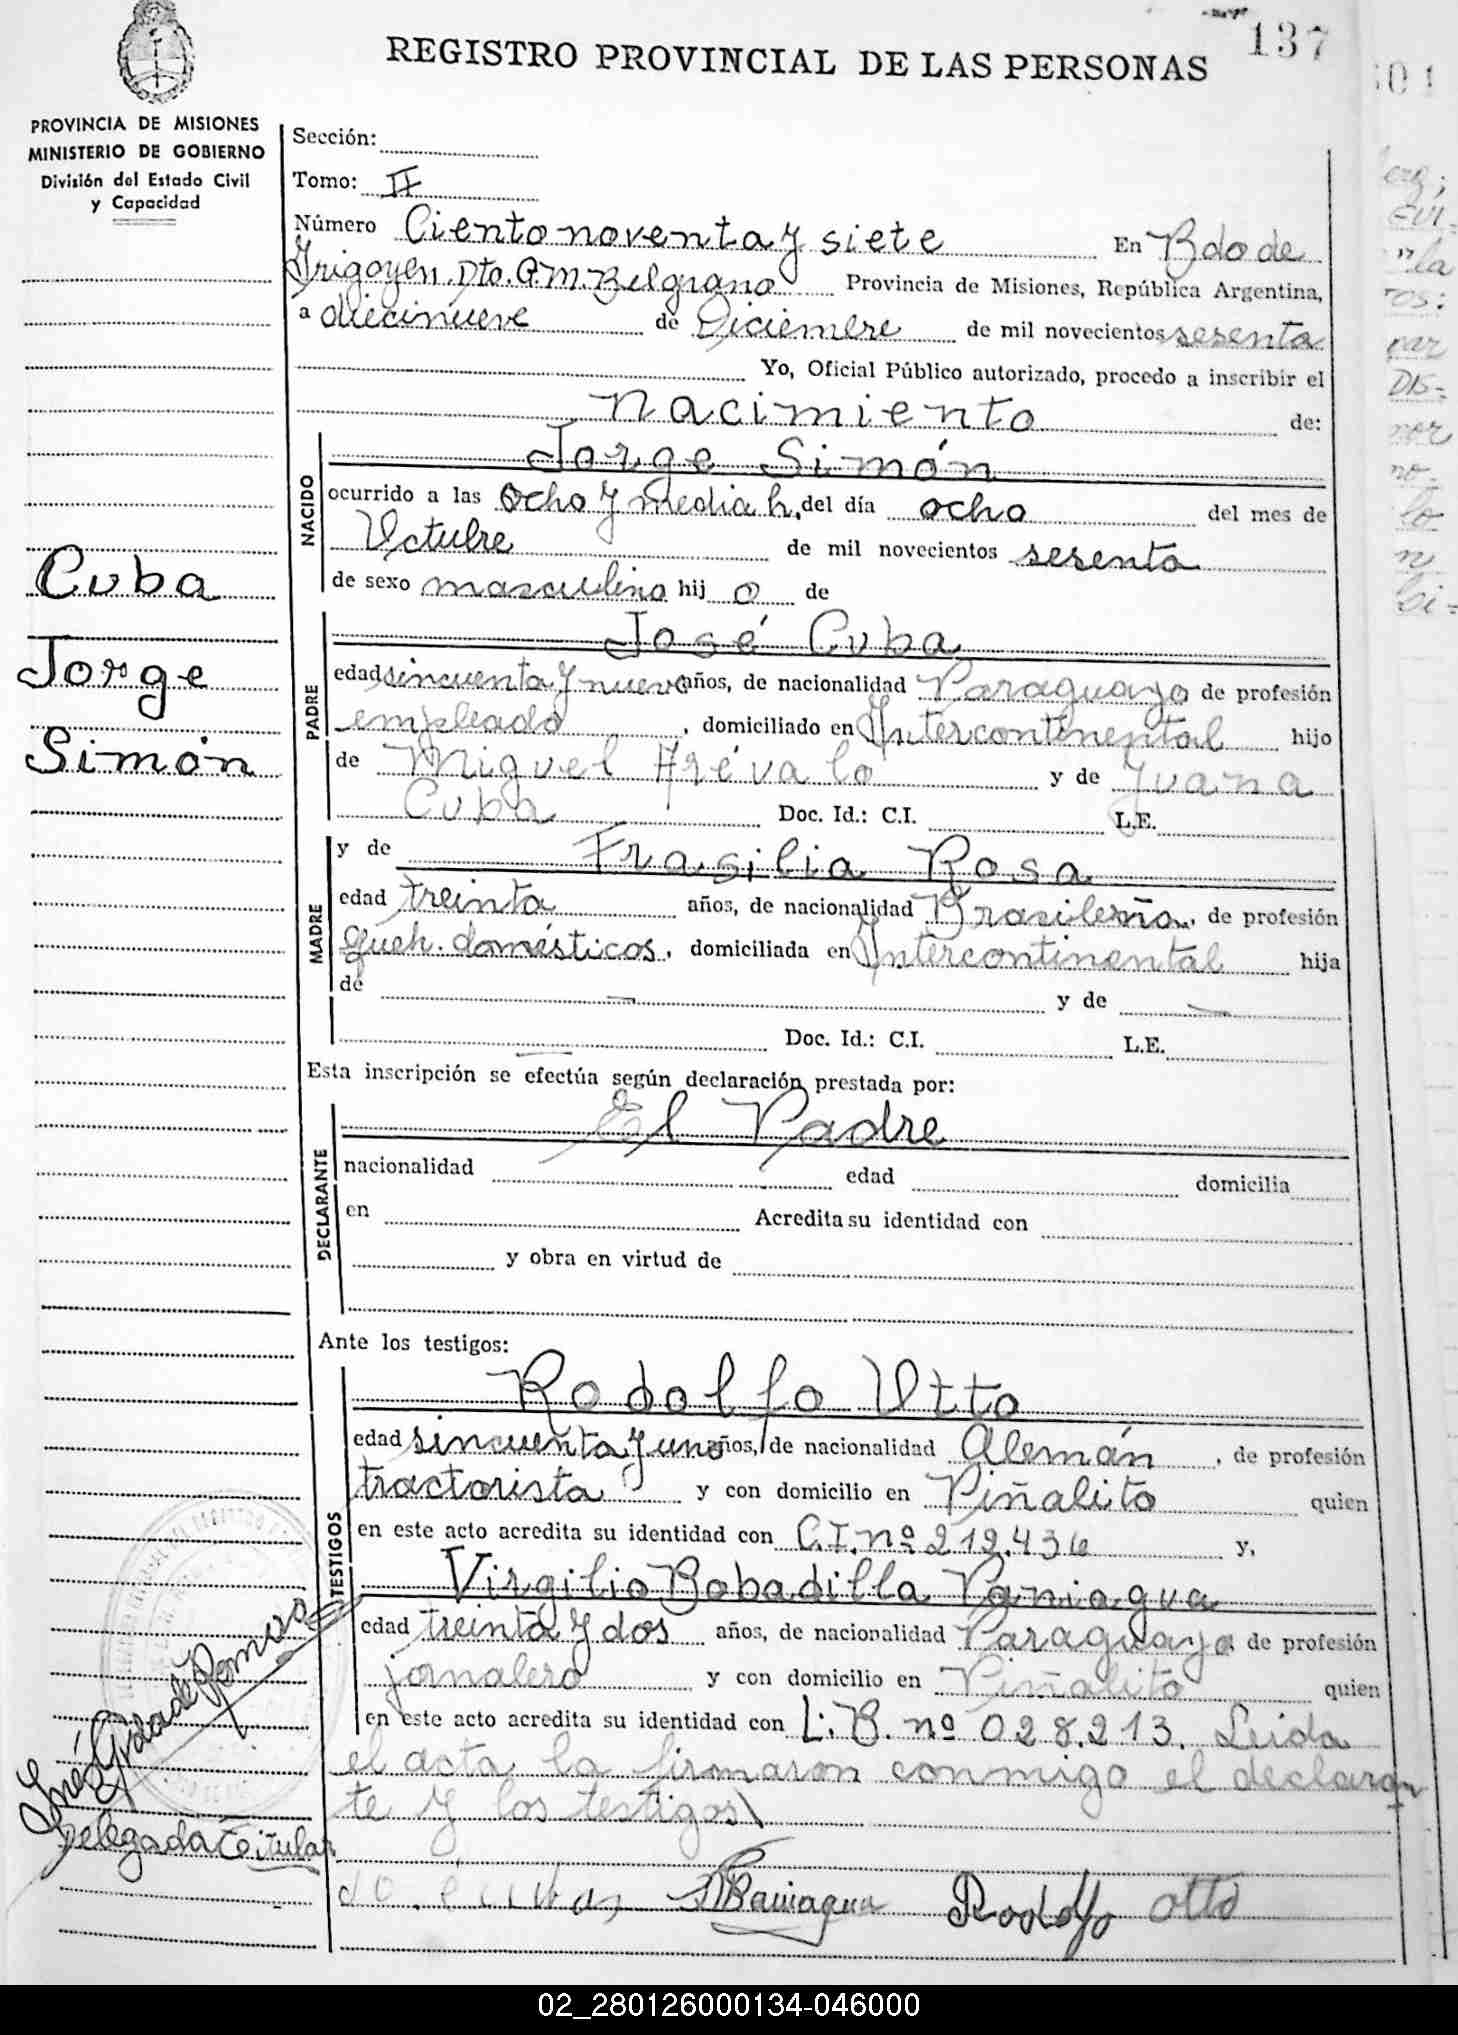 137
REGISTRO PROVINCIAL DE LAS PERSONAS
PROVINCIA DE MISIONES
MINISTERIO DE GOBIERNO
División del Estado Civil
y Capacidad
Cuba
Jorge
Simón
Sección:
Tomo: II
Número Ciento noventa y siete En Bdo de
Irigoyen. Dto. G. M. Belgrano Provincia de Misiones, República Argentina,
a diecinueve de Diciembre de mil novecientos sesenta
Yo, Oficial Público autorizado, procedo a inscribir el
Nacimiento de:
NACIDO
Jorge Simón
ocurrido a las ocho y media h. del día ocho del mes de
Octubre de mil novecientos sesenta
de sexo masculino hij o de
PADRE
José Cuba
edad sincuenta y nueve años, de nacionalidad Paraguayo de profesión
empleado, domiciliado en Intercontinental hijo
de Miguel Arévalo y de Juana
Cuba Doc. Id.: C.I. L.E.
MADRE
y de Frasilia Rosa
edad treinta años, de nacionalidad Brasileña, de profesión
queh. domésticos, domiciliada en Intercontinental hija
de — y de —
Doc. Id.: C.I. L.E.
Esta inscripción se efectúa según declaración prestada por:
DECLARANTE
El Padre
nacionalidad edad domicilia
en Acredita su identidad con
y obra en virtud de
Ante los testigos:
TESTIGOS
Rodolfo Otto
edad sincuenta y uno años, de nacionalidad Alemán, de profesión
tractorista y con domicilio en Piñalito quien
en este acto acredita su identidad con C.I. nº 212.436 y,
Virgilio Bobadilla Paniagua
edad treinta y dos años, de nacionalidad Paraguayo de profesión
jornalero y con domicilio en Piñalito quien
en este acto acredita su identidad con L. B. nº 028.213. Leida
el acta la firmaron conmigo el declaran
te y los testigos
Paniagua Rodolfo Otto
Delegada Titular
02_280126000134-046000